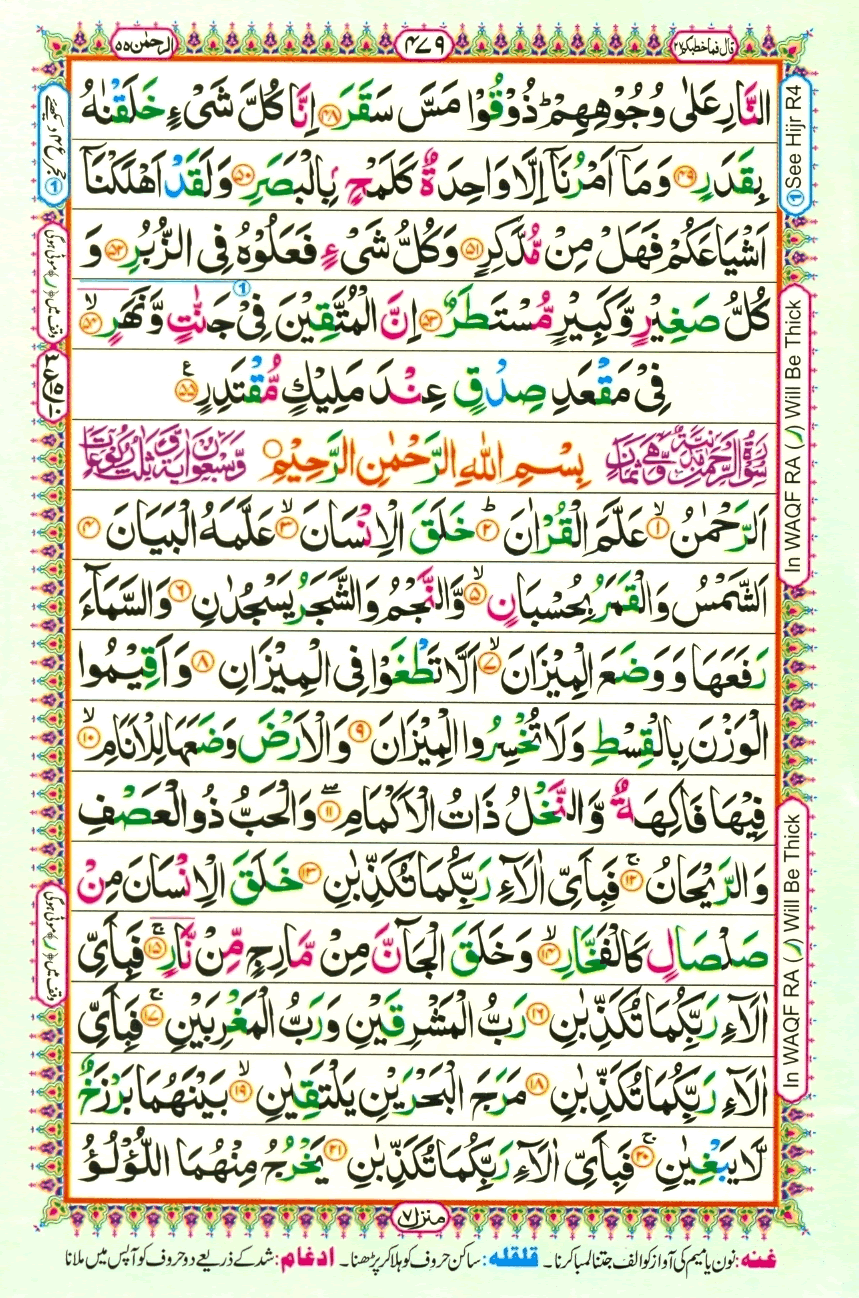 قال فما خطبکم ۲۷
۴۷۹
الرحمٰن ۵۵
النَّارِ عَلٰى وُجُوْهِهِمْ ؕ ذُوْقُوْا مَسَّ سَقَرَ ﴿۴۸﴾ اِنَّا كُلَّ شَىْءٍ خَلَقْنٰهُ
بِقَدَرٍ ﴿۴۹﴾ وَمَاۤ اَمْرُنَاۤ اِلَّا وَاحِدَةٌ كَلَمْحٍۭ بِالْبَصَرِ ﴿۵۰﴾ وَلَقَدْ اَهْلَكْنَاۤ
اَشْيَاعَكُمْ فَهَلْ مِنْ مُّدَّكِرٍ ﴿۵۱﴾ وَكُلُّ شَىْءٍ فَعَلُوْهُ فِى الزُّبُرِ ﴿۵۲﴾ وَ
كُلُّ صَغِيْرٍ وَّكَبِيْرٍ مُّسْتَطَرٌ ﴿۵۳﴾ اِنَّ الْمُتَّقِيْنَ فِىْ جَنّٰتٍ وَّنَهَرٍ ۙ﴿۵۴﴾
فِىْ مَقْعَدِ صِدْقٍ عِنْدَ مَلِيْكٍ مُّقْتَدِرٍ ﴿۵۵﴾ ع
سُوْرَةُ الرَّحْمٰنِ مَدَنِيَّةٌ وَّهِىَ ثَمَانٌ بِسْمِ اللّٰهِ الرَّحْمٰنِ الرَّحِيْمِ وَّسَبْعُوْنَ اٰيَةً وَّثَلٰثُ رُكُوْعَاتٍ
اَلرَّحْمٰنُ ۙ﴿۱﴾ عَلَّمَ الْقُرْاٰنَ ؕ﴿۲﴾ خَلَقَ الْاِنْسَانَ ۙ﴿۳﴾ عَلَّمَهُ الْبَيَانَ ﴿۴﴾
اَلشَّمْسُ وَالْقَمَرُ بِحُسْبَانٍ ۙ﴿۵﴾ وَّالنَّجْمُ وَالشَّجَرُ يَسْجُدٰنِ ﴿۶﴾ وَالسَّمَآءَ
رَفَعَهَا وَوَضَعَ الْمِيْزَانَ ۙ﴿۷﴾ اَلَّا تَطْغَوْا فِى الْمِيْزَانِ ﴿۸﴾ وَاَقِيْمُوا
الْوَزْنَ بِالْقِسْطِ وَلَا تُخْسِرُوا الْمِيْزَانَ ﴿۹﴾ وَالْاَرْضَ وَضَعَهَا لِلْاَنَامِ ۙ﴿۱۰﴾
فِيْهَا فَاكِهَةٌ وَّالنَّخْلُ ذَاتُ الْاَكْمَامِ ۖ﴿۱۱﴾ وَالْحَبُّ ذُو الْعَصْفِ
وَالرَّيْحَانُ ۚ﴿۱۲﴾ فَبِاَىِّ اٰلَآءِ رَبِّكُمَا تُكَذِّبٰنِ ﴿۱۳﴾ خَلَقَ الْاِنْسَانَ مِنْ
صَلْصَالٍ كَالْفَخَّارِ ۙ﴿۱۴﴾ وَخَلَقَ الْجَآنَّ مِنْ مَّارِجٍ مِّنْ نَّارٍ ۚ﴿۱۵﴾ فَبِاَىِّ
اٰلَآءِ رَبِّكُمَا تُكَذِّبٰنِ ﴿۱۶﴾ رَبُّ الْمَشْرِقَيْنِ وَرَبُّ الْمَغْرِبَيْنِ ۚ﴿۱۷﴾ فَبِاَىِّ
اٰلَآءِ رَبِّكُمَا تُكَذِّبٰنِ ﴿۱۸﴾ مَرَجَ الْبَحْرَيْنِ يَلْتَقِيٰنِ ۙ﴿۱۹﴾ بَيْنَهُمَا بَرْزَخٌ
لَّا يَبْغِيٰنِ ۚ﴿۲۰﴾ فَبِاَىِّ اٰلَآءِ رَبِّكُمَا تُكَذِّبٰنِ ﴿۲۱﴾ يَخْرُجُ مِنْهُمَا اللُّؤْلُؤُ
① See Hijr R4
In WAQF RA (ر) Will Be Thick
In WAQF RA (ر) Will Be Thick
① حجر ع ۴ دیکھئے
وقف میں ﴿ر﴾ موٹی ہوگی
وقف میں ﴿ر﴾ موٹی ہوگی
منزل ۷
غنه: نون یا میم کی آواز کو الف جتنا لمبا کرنا۔ قلقله: ساکن حروف کو ہلا کر پڑھنا۔ ادغام: شد کے ذریعے دو حروف کو آپس میں ملانا